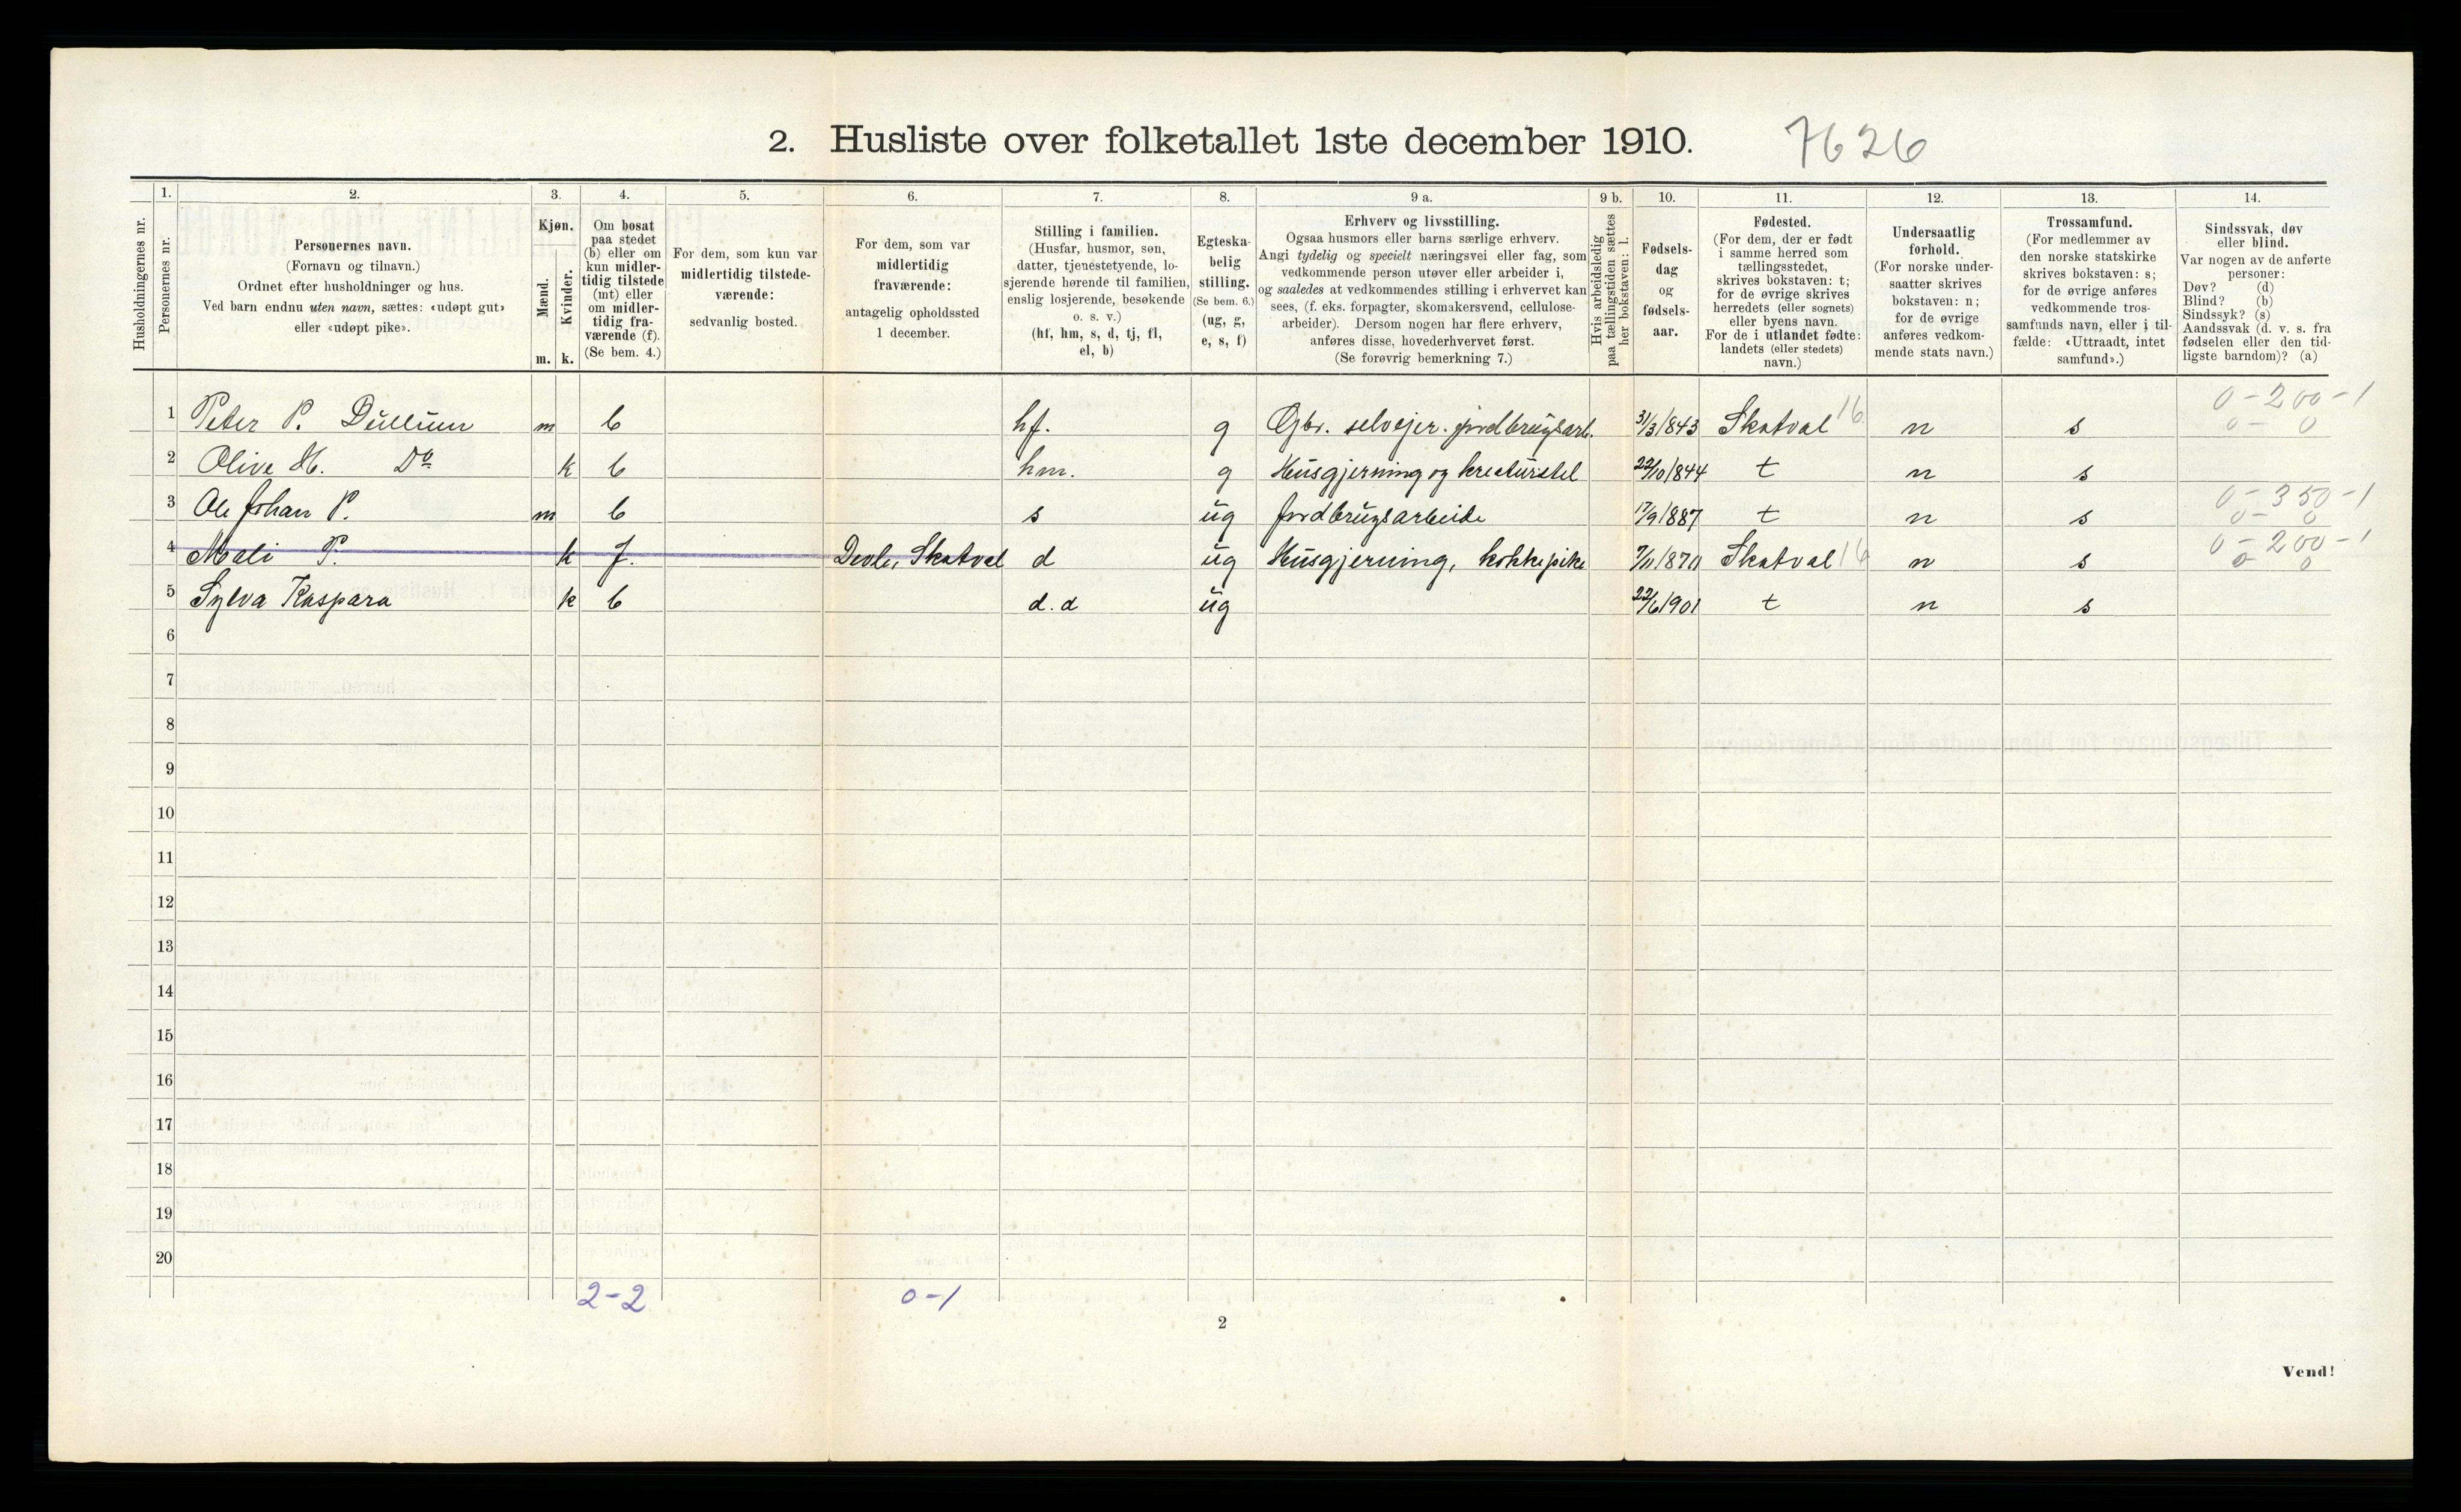 2. Husliste over folketallet 1ste december 1910. 7626
1. 2. 3. 4. 5. 6. 7. 8. 9 a. 9 b. 10. 11. 12. 13. 14.
Husholdningernes nr.
Personernes nr.
Personernes navn.
(Fornavn og tilnavn.)
Ordnet efter husholdninger og hus.
Ved barn endnu uten navn, sættes: «udøpt gut»
eller «udøpt pike».
Kjøn.
Mænd.
Kvinder.
m. k.
Om bosat
paa stedet
(b) eller om
kun midler-
tidig tilstede
(mt) eller
om midler-
tidig fra-
værende (f).
(Se bem. 4.)
For dem, som kun var
midlertidig tilstede-
værende:
sedvanlig bosted.
For dem, som var
midlertidig
fraværende:
antagelig opholdssted
1 december.
Stilling i familien.
(Husfar, husmor, søn,
datter, tjenestetyende, lo-
sjerende hørende til familien,
enslig losjerende, besøkende
o. s. v.)
(hf, hm, s, d, tj, fl,
el, b)
Egteska-
belig
stilling.
(Se bem. 6.)
(ug, g,
e, s, f)
Erhverv og livsstilling.
Ogsaa husmors eller barns særlige erhverv.
Angi tydelig og specielt næringsvei eller fag, som
vedkommende person utøver eller arbeider i,
og saaledes at vedkommendes stilling i erhvervet kan
sees, (f. eks. forpagter, skomakersvend, cellulose-
arbeider). Dersom nogen har flere erhverv,
anføres disse, hovederhvervet først.
(Se forøvrig bemerkning 7.)
Hvis arbeidsledig
paa tællingstiden sættes
her bokstaven: l.
Fødsels-
dag
og
fødsels-
aar.
Fødested.
(For dem, der er født
i samme herred som
tællingsstedet,
skrives bokstaven: t;
for de øvrige skrives
herredets (eller sognets)
eller byens navn.
For de i utlandet fødte:
landets (eller stedets)
navn.)
Undersaatlig
forhold.
(For norske under-
saatter skrives
bokstaven: n;
for de øvrige
anføres vedkom-
mende stats navn.)
Trossamfund.
(For medlemmer av
den norske statskirke
skrives bokstaven: s;
for de øvrige anføres
vedkommende tros-
samfunds navn, eller i til-
fælde: «Uttraadt, intet
samfund».)
Sindssvak, døv
eller blind.
Var nogen av de anførte
personer:
Døv? (d)
Blind? (b)
Sindssyk? (s)
Aandssvak (d. v. s. fra
fødselen eller den tid-
ligste barndom)? (a)
0-200-1
1 Peter P. Dullum m b hf. g Gbr. selvejer. jordbrugsarb. 31/3/843 Skatval 16 n s 0- 0
2 Olive H. Do k b hm. g Husgjerning og kreaturstel 22/10/844 t n s
0-350-1
3 Ole Johan P. m b s ug Jordbrugsarbeide 17/9/887 t n s 0- 0
0-200-1
4 Mali P. k f. Devle, Skatval d ug Husgjerning, kokkepike 7/11/870 Skatval 16 n s 0 0
5 Sylva Kaspara k b d.d ug 22/6/901 t n s
6
7
8
9
10
11
12
13
14
15
16
17
18
19
20
2-2 0-1
2
Vend!